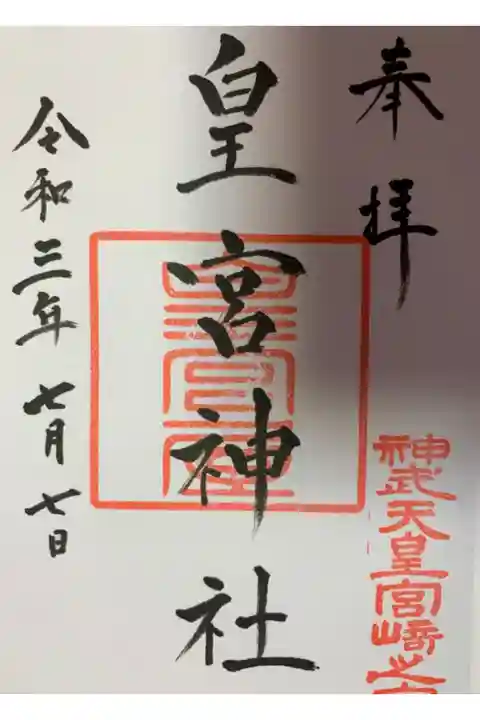 奉拝
神武天皇宮崎之
皇宮神社
皇宮屋
令和三年七月七日